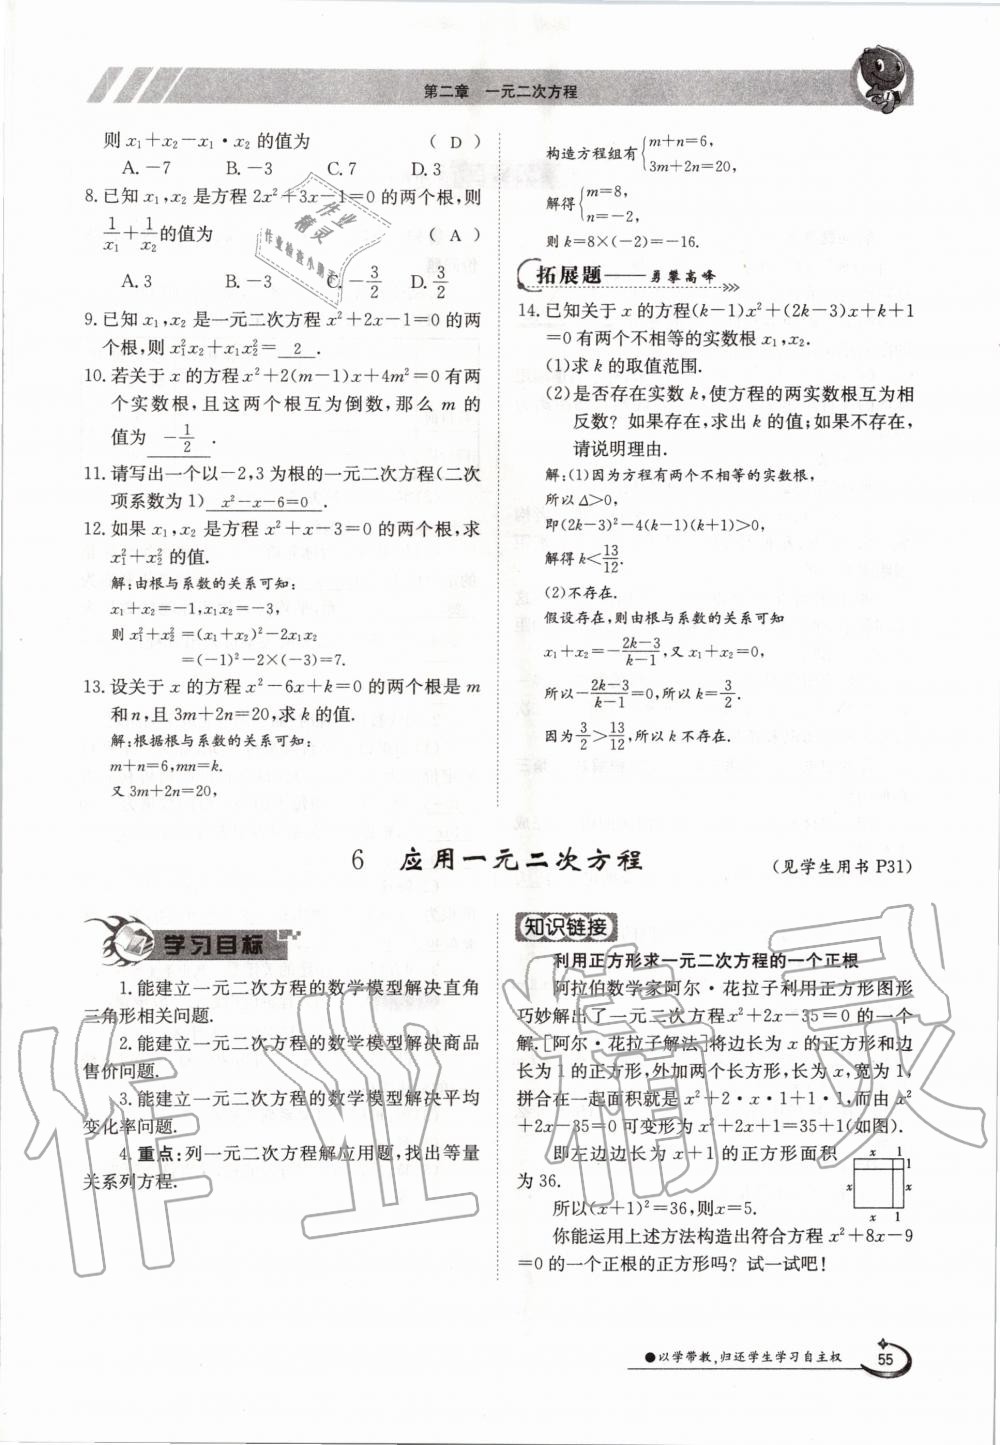 第二章　一元二次方程
则 x₁+x₂-x₁·x₂ 的值为　（ D ）
A. -7　B. -3　C. 7　D. 3
8. 已知 x₁,x₂ 是方程 2x²+3x-1=0 的两个根,则
1/x₁+1/x₂的值为　（ A ）
A. 3　B. -3　C. -3/2　D. 3/2
9. 已知 x₁,x₂ 是一元二次方程 x²+2x-1=0 的两
个根,则 x₁²x₂+x₁x₂²= 2 .
10. 若关于 x 的方程 x²+2(m-1)x+4m²=0 有两
个实数根,且这两个根互为倒数,那么 m 的
值为 -1/2 .
11. 请写出一个以-2,3 为根的一元二次方程(二次
项系数为 1) x²-x-6=0 .
12. 如果 x₁,x₂ 是方程 x²+x-3=0 的两个根,求
x₁²+x₂² 的值.
解:由根与系数的关系可知:
x₁+x₂=-1,x₁x₂=-3,
则 x₁²+x₂²=(x₁+x₂)²-2x₁x₂
=(-1)²-2×(-3)=7.
13. 设关于 x 的方程 x²-6x+k=0 的两个根是 m
和 n,且 3m+2n=20,求 k 的值.
解:根据根与系数的关系可知:
m+n=6,mn=k.
又 3m+2n=20,
构造方程组有{m+n=6,
3m+2n=20,
解得{m=8,
n=-2,
则 k=8×(-2)=-16.
拓展题——勇攀高峰
14. 已知关于 x 的方程(k-1)x²+(2k-3)x+k+1
=0 有两个不相等的实数根 x₁,x₂.
(1)求 k 的取值范围.
(2)是否存在实数 k,使方程的两实数根互为相
反数? 如果存在,求出 k 的值;如果不存在,
请说明理由.
解:(1)因为方程有两个不相等的实数根,
所以 Δ>0,
即(2k-3)²-4(k-1)(k+1)>0,
解得 k<13/12.
(2)不存在.
假设存在,则由根与系数的关系可知
x₁+x₂=-(2k-3)/(k-1),又 x₁+x₂=0,
所以-(2k-3)/(k-1)=0,所以 k=3/2.
因为3/2>13/12,所以 k 不存在.
6　应用一元二次方程　(见学生用书 P31)
学习目标
1. 能建立一元二次方程的数学模型解决直角
三角形相关问题.
2. 能建立一元二次方程的数学模型解决商品
售价问题.
3. 能建立一元二次方程的数学模型解决平均
变化率问题.
4. 重点:列一元二次方程解应用题,找出等量
关系列方程.
知识链接
利用正方形求一元二次方程的一个正根
阿拉伯数学家阿尔·花拉子利用正方形图形
巧妙解出了一元二次方程 x²+2x-35=0 的一个
解.[阿尔·花拉子解法]将边长为 x 的正方形和边
长为 1 的正方形,外加两个长方形,长为 x,宽为 1,
拼合在一起面积就是 x²+2·x·1+1·1,而由 x²
+2x-35=0 可变形为 x²+2x+1=35+1(如图).
即左边边长为 x+1 的正方形面积
为 36.
所以(x+1)²=36,则x=5.
你能运用上述方法构造出符合方程 x²+8x-9
=0 的一个正根的正方形吗? 试一试吧!
x 1
1
x x
x 1
●以学带教,归还学生学习自主权
55
作业
精灵
作业检查小帮手
作业精灵